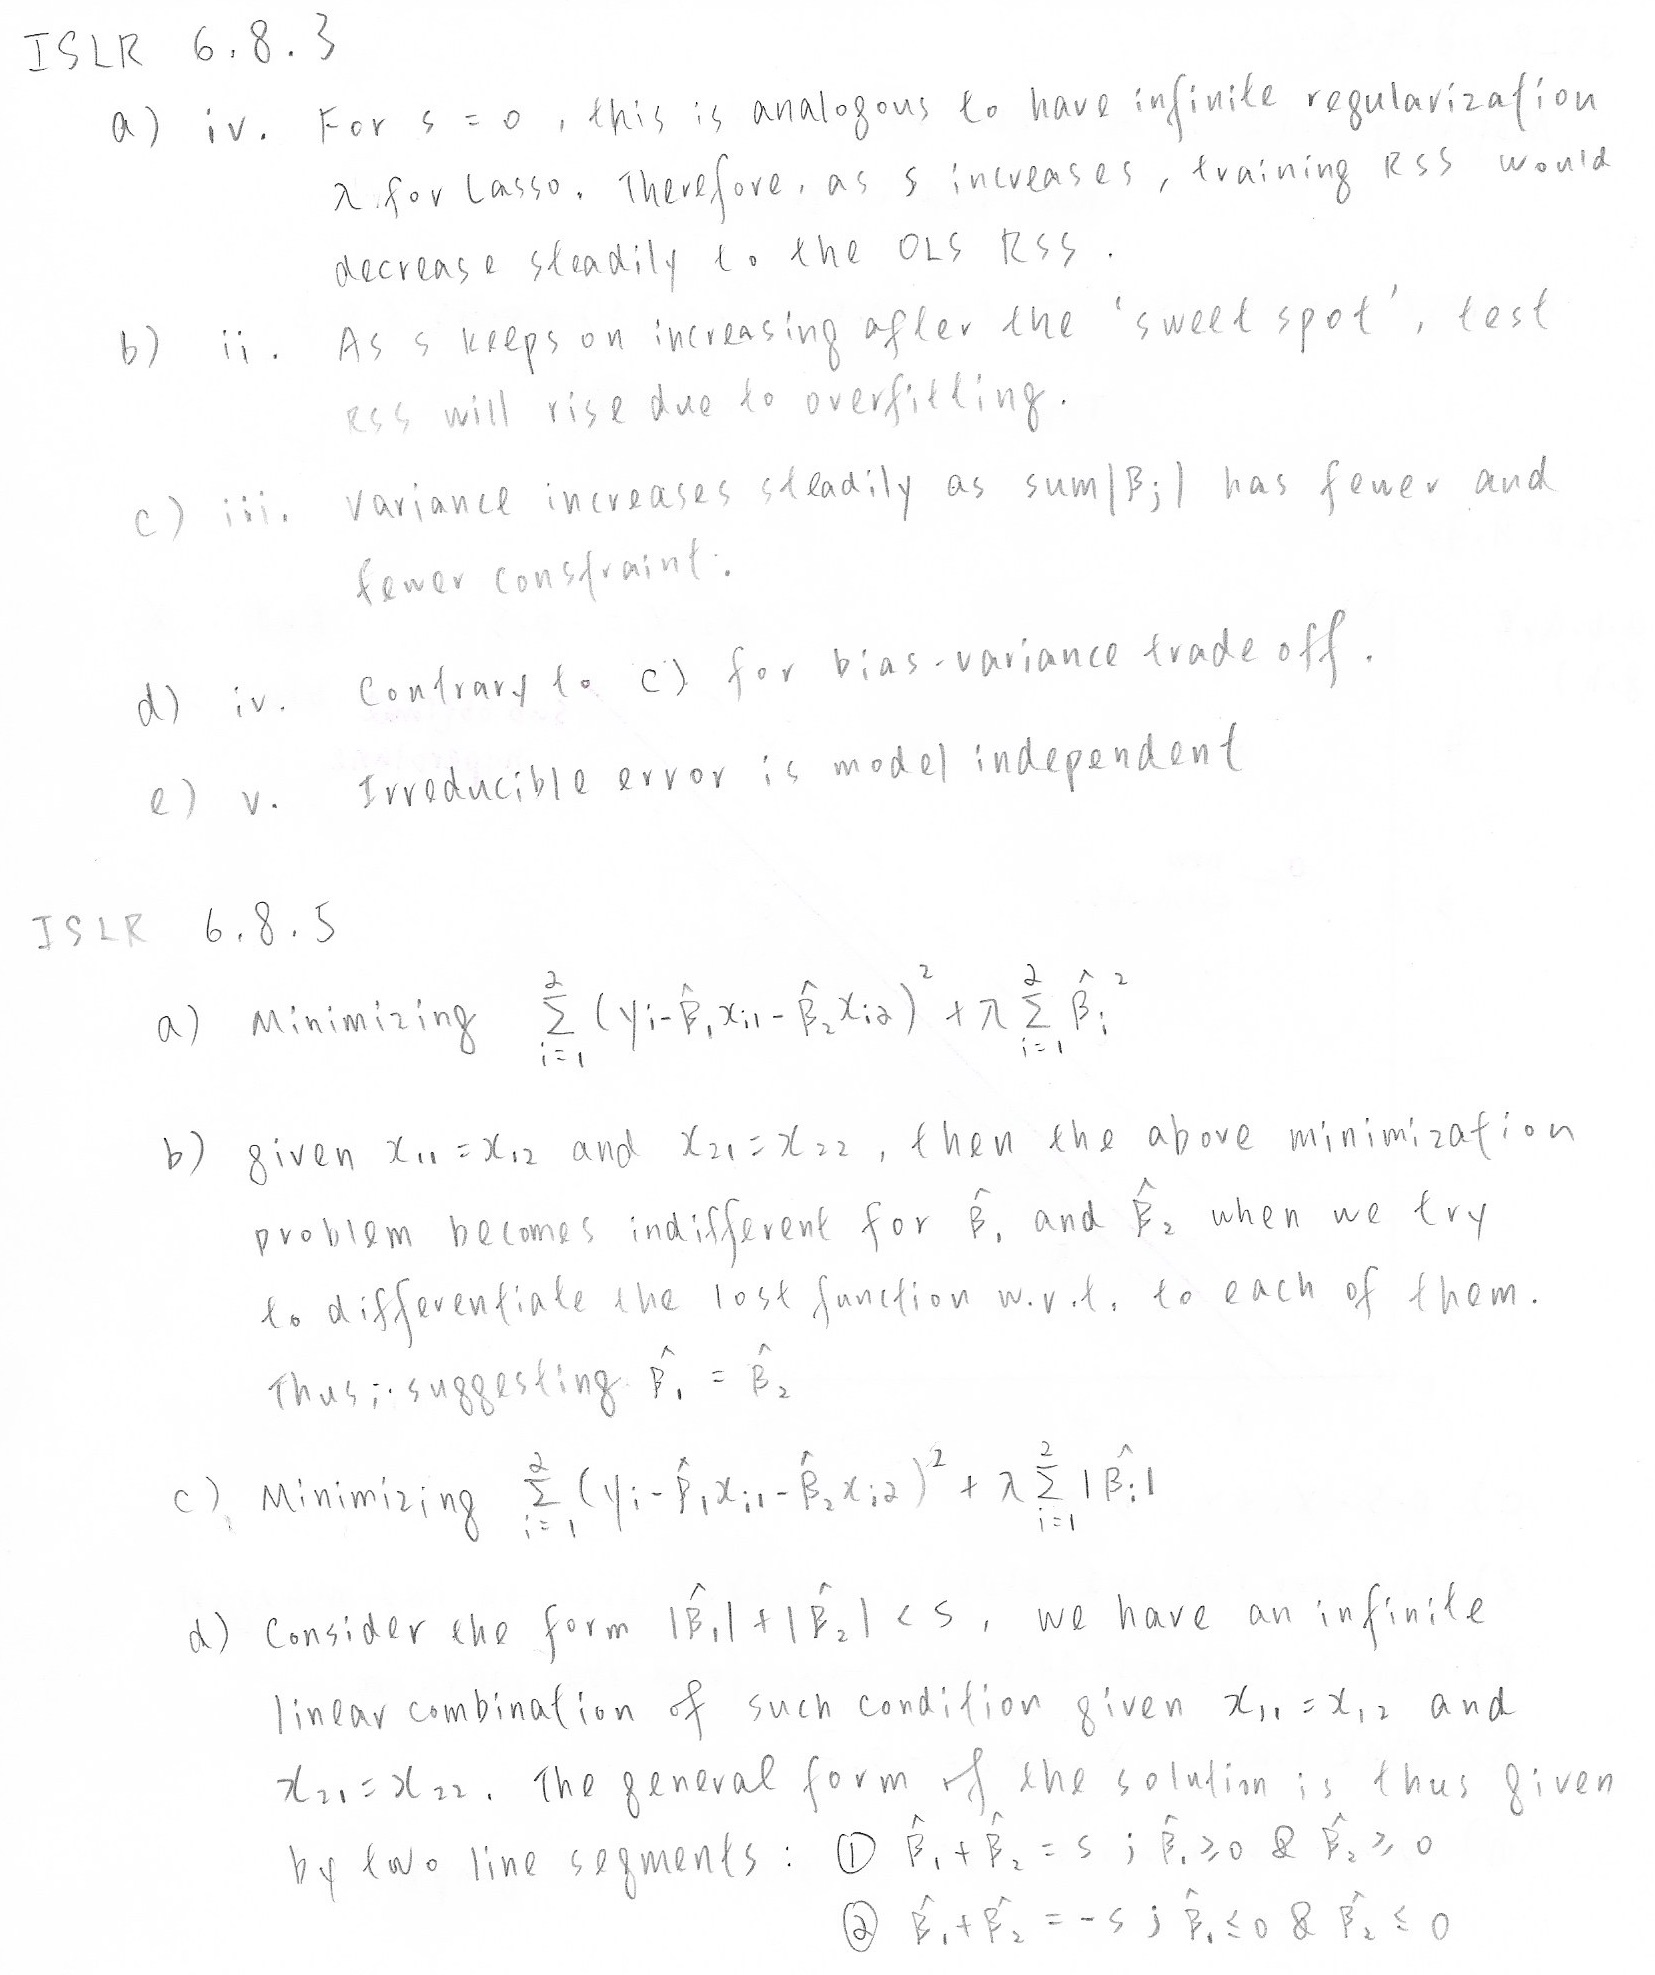 ISLR 6.8.3
a) iv. For s = 0, this is analogous to have infinite regularization
λ for Lasso. Therefore, as s increases, training RSS would
decrease steadily to the OLS RSS.
b) ii. As s keeps on increasing after the 'sweet spot', test
RSS will rise due to overfitting.
c) iii. Variance increases steadily as sum|βj| has fewer and
fewer constraint.
d) iv. Contrary to c) for bias-variance trade off.
e) v. Irreducible error is model independent
ISLR 6.8.5
a) Minimizing $\sum_{i=1}^{2} (y_i - \hat{\beta}_1 x_{i1} - \hat{\beta}_2 x_{i2})^2 + \lambda \sum_{i=1}^{2} \hat{\beta}_i^2$
b) given $x_{11} = x_{12}$ and $x_{21} = x_{22}$, then the above minimization
problem becomes indifferent for $\hat{\beta}_1$ and $\hat{\beta}_2$ when we try
to differentiate the lost function w.r.t. to each of them.
Thus; suggesting $\hat{\beta}_1 = \hat{\beta}_2$
c) Minimizing $\sum_{i=1}^{2} (y_i - \hat{\beta}_1 x_{i1} - \hat{\beta}_2 x_{i2})^2 + \lambda \sum_{i=1}^{2} |\hat{\beta}_i|$
d) Consider the form $|\hat{\beta}_1| + |\hat{\beta}_2| < s$, we have an infinite
linear combination of such condition given $x_{11} = x_{12}$ and
$x_{21} = x_{22}$. The general form of the solution is thus given
by two line segments: ① $\hat{\beta}_1 + \hat{\beta}_2 = s$ ; $\hat{\beta}_1 \geq 0$ & $\hat{\beta}_2 \geq 0$
② $\hat{\beta}_1 + \hat{\beta}_2 = -s$ ; $\hat{\beta}_1 \leq 0$ & $\hat{\beta}_2 \leq 0$